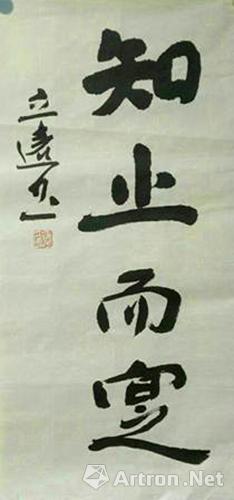 知止而定
立
Artron.Net